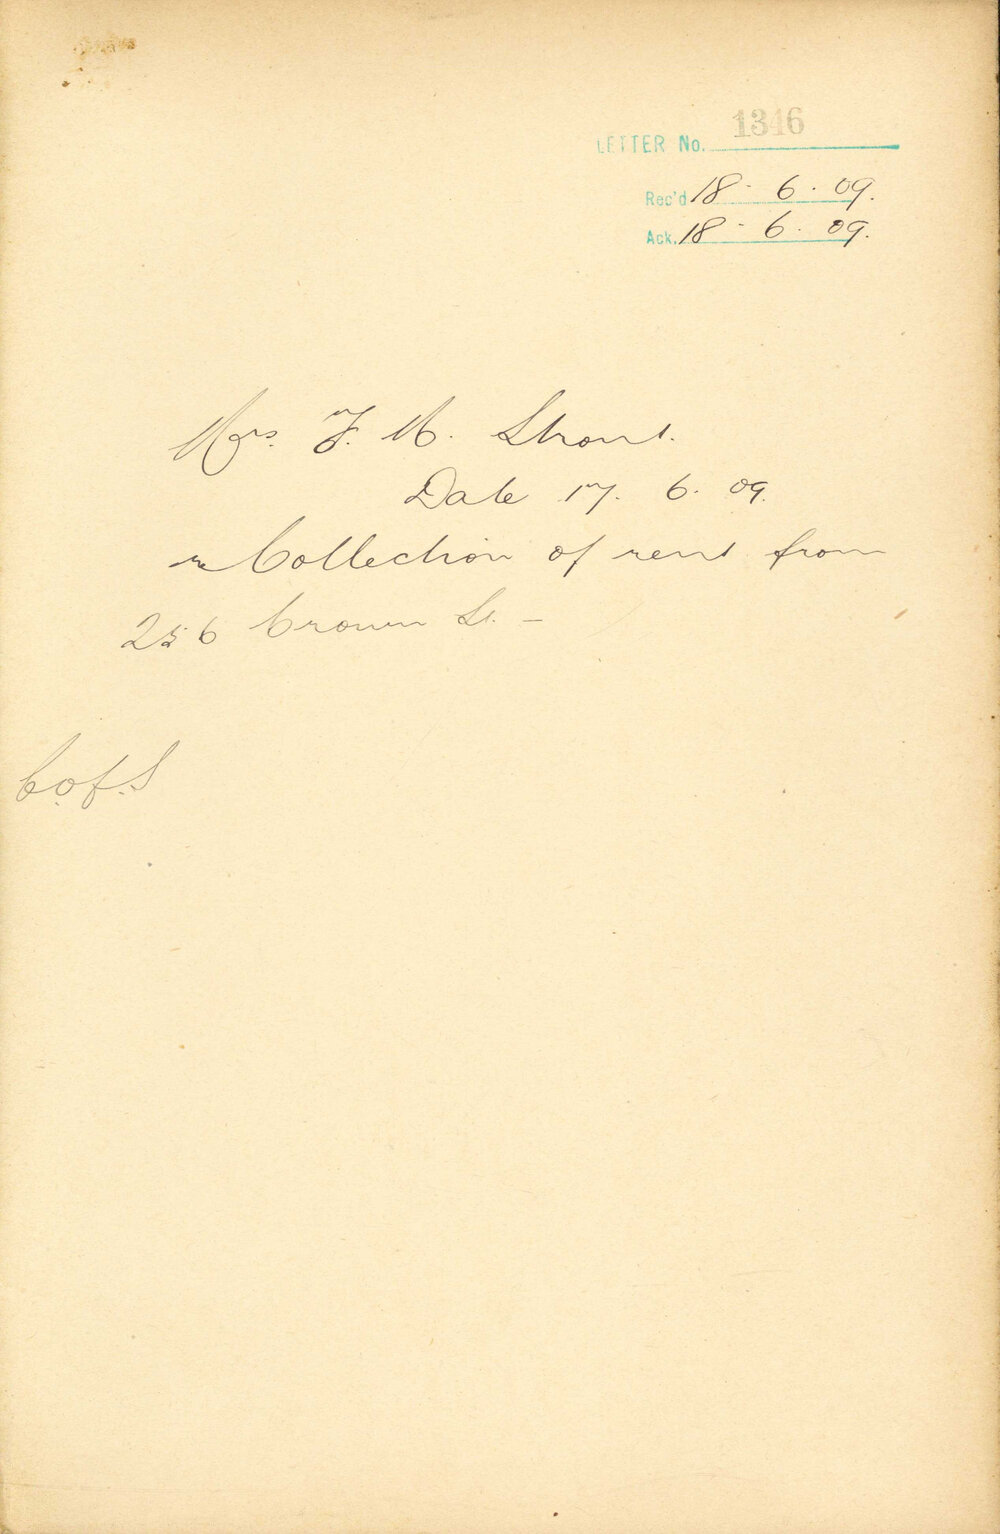 LETTER No. 1346
Rec'd 18 - 6 - 09.
Ack. 18 - 6 - 09.
Mrs. F. M.
Date 17. 6. 09.
re Collection of rent from
256 Crown St. -
C.of.S